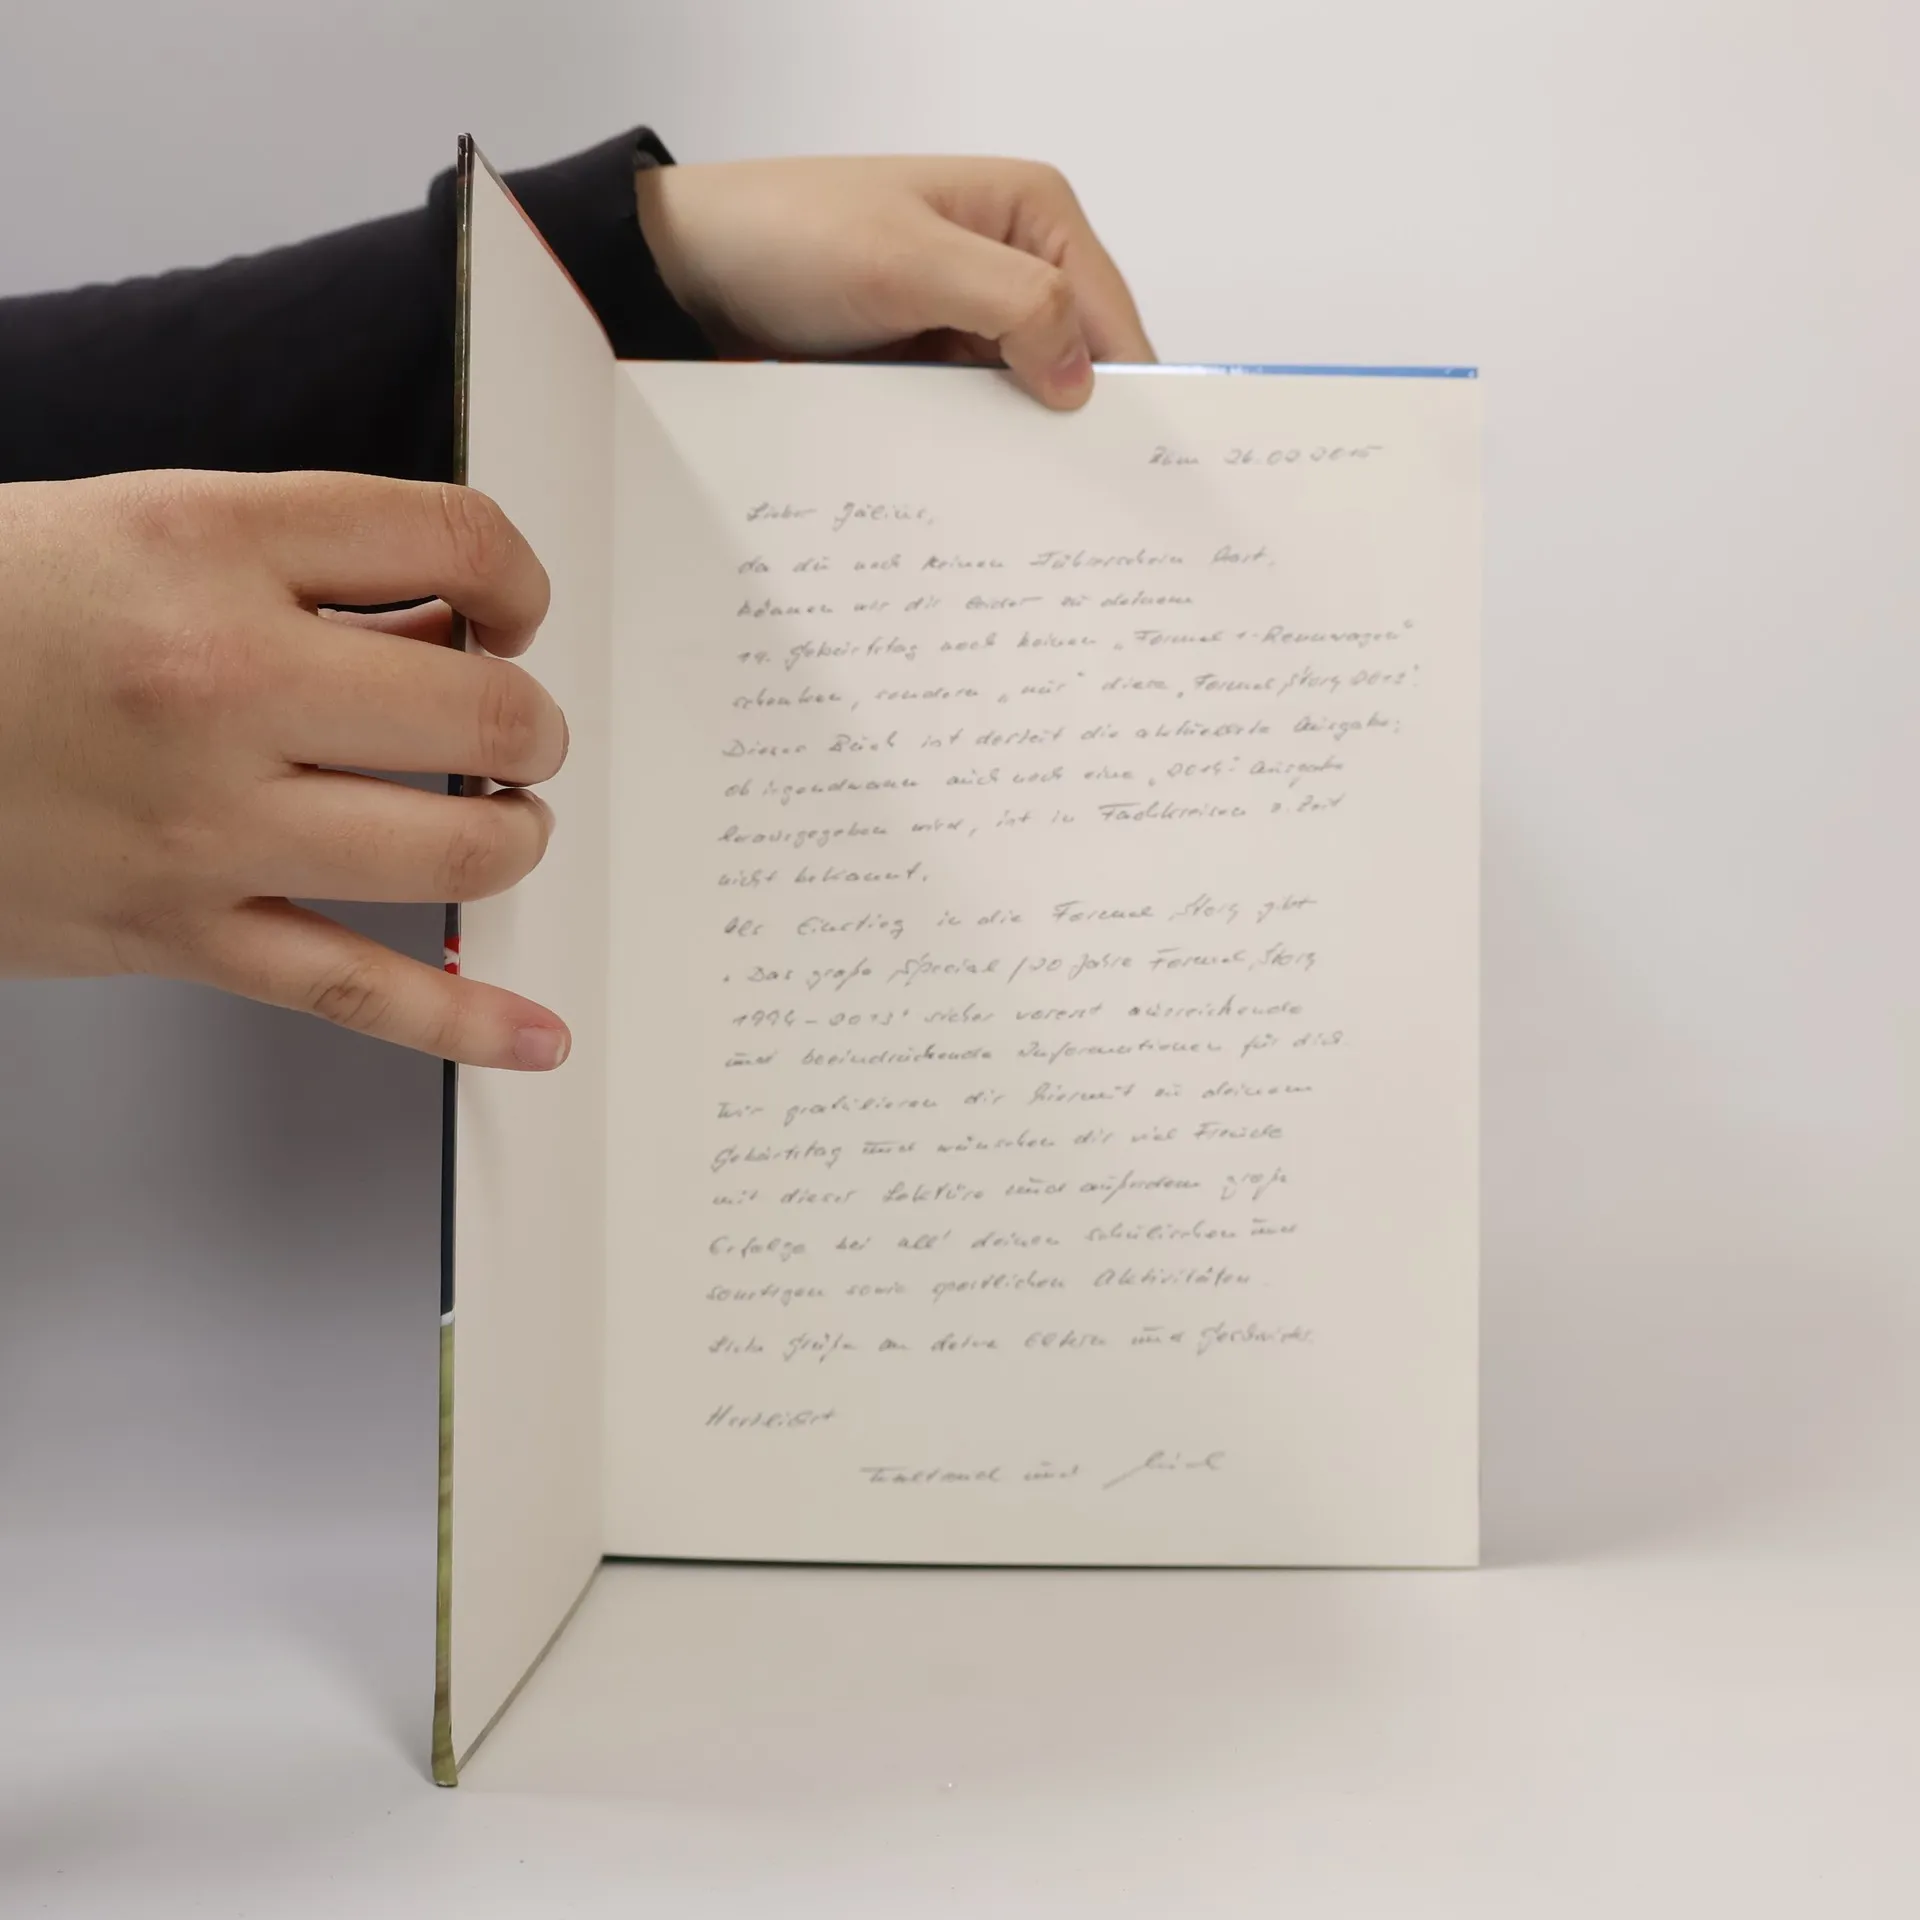 26.02.2015
Lieber Julius,
da du noch keinen Führerschein hast,
können wir dir leider zu deinem
14. Geburtstag noch keinen „Formel 1-Rennwagen“
schenken, sondern „nur“ diese „Formel Story 2013“.
Dieses Buch ist derzeit die aktuellste Ausgabe;
ob irgendwann auch noch eine „2014“ Ausgabe
herausgegeben wird, ist in Fachkreisen z. Zeit
nicht bekannt.
Als Einstieg in die Formel Story gibt
„Das große Special / 20 Jahre Formel Story
1994 - 2013“ sicher vorerst ausreichende
und beeindruckende Informationen für dich.
Wir gratulieren dir hiermit zu deinem
Geburtstag und wünschen dir viel Freude
mit dieser Lektüre und außerdem große
Erfolge bei all' deinen schulischen und
sonstigen sowie sportlichen Aktivitäten.
Liebe Grüße an deine Eltern und Geschwister.
Herzlichst
Waltraud und